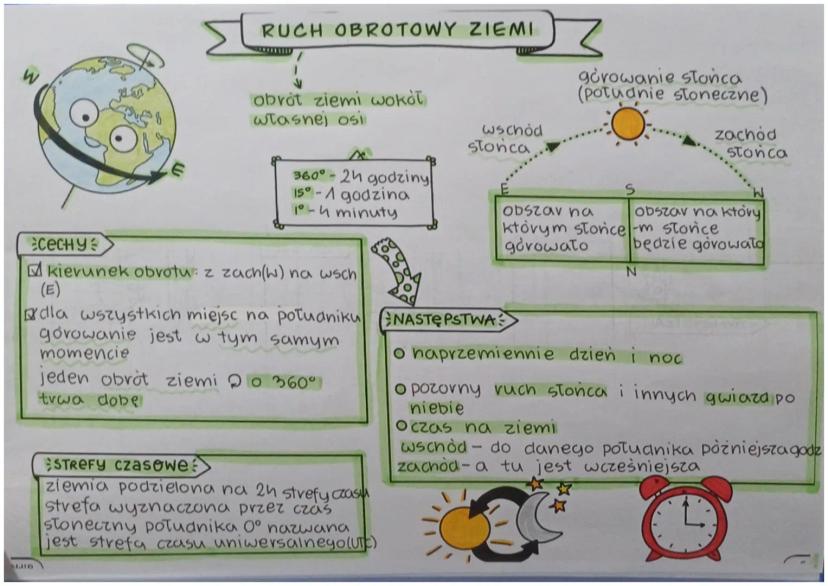 RUCH OBROTOWY ZIEMI
obrót ziemi wokół
własnej osi
W
E
360° - 24 godziny
15° - 1 godzina
1° - 4 minuty
górowanie słońca
(południe słoneczne)
wschód
słońca
zachód
słońca
E
S
W
obszar na
którym słońce
górowało
obszar na który
-m słońce
będzie górowało
N
CECHY
kierunek obrotu: z zach(W) na wsch
(E)
dla wszystkich miejsc na południku
górowanie jest w tym samym
momencie
jeden obrót ziemi o 360°
trwa dobę
NASTĘPSTWA
naprzemiennie dzień i noc
pozorny ruch słońca i innych gwiazd po
niebie
czas na ziemi
wschód - do danego południka późniejsza godz
zachód - a tu jest wcześniejsza
STREFY CZASOWE
ziemia podzielona na 24 strefy czasu
strefa wyznaczona przez czas
słoneczny południka 0° nazwana
jest strefą czasu uniwersalnego (UTC)